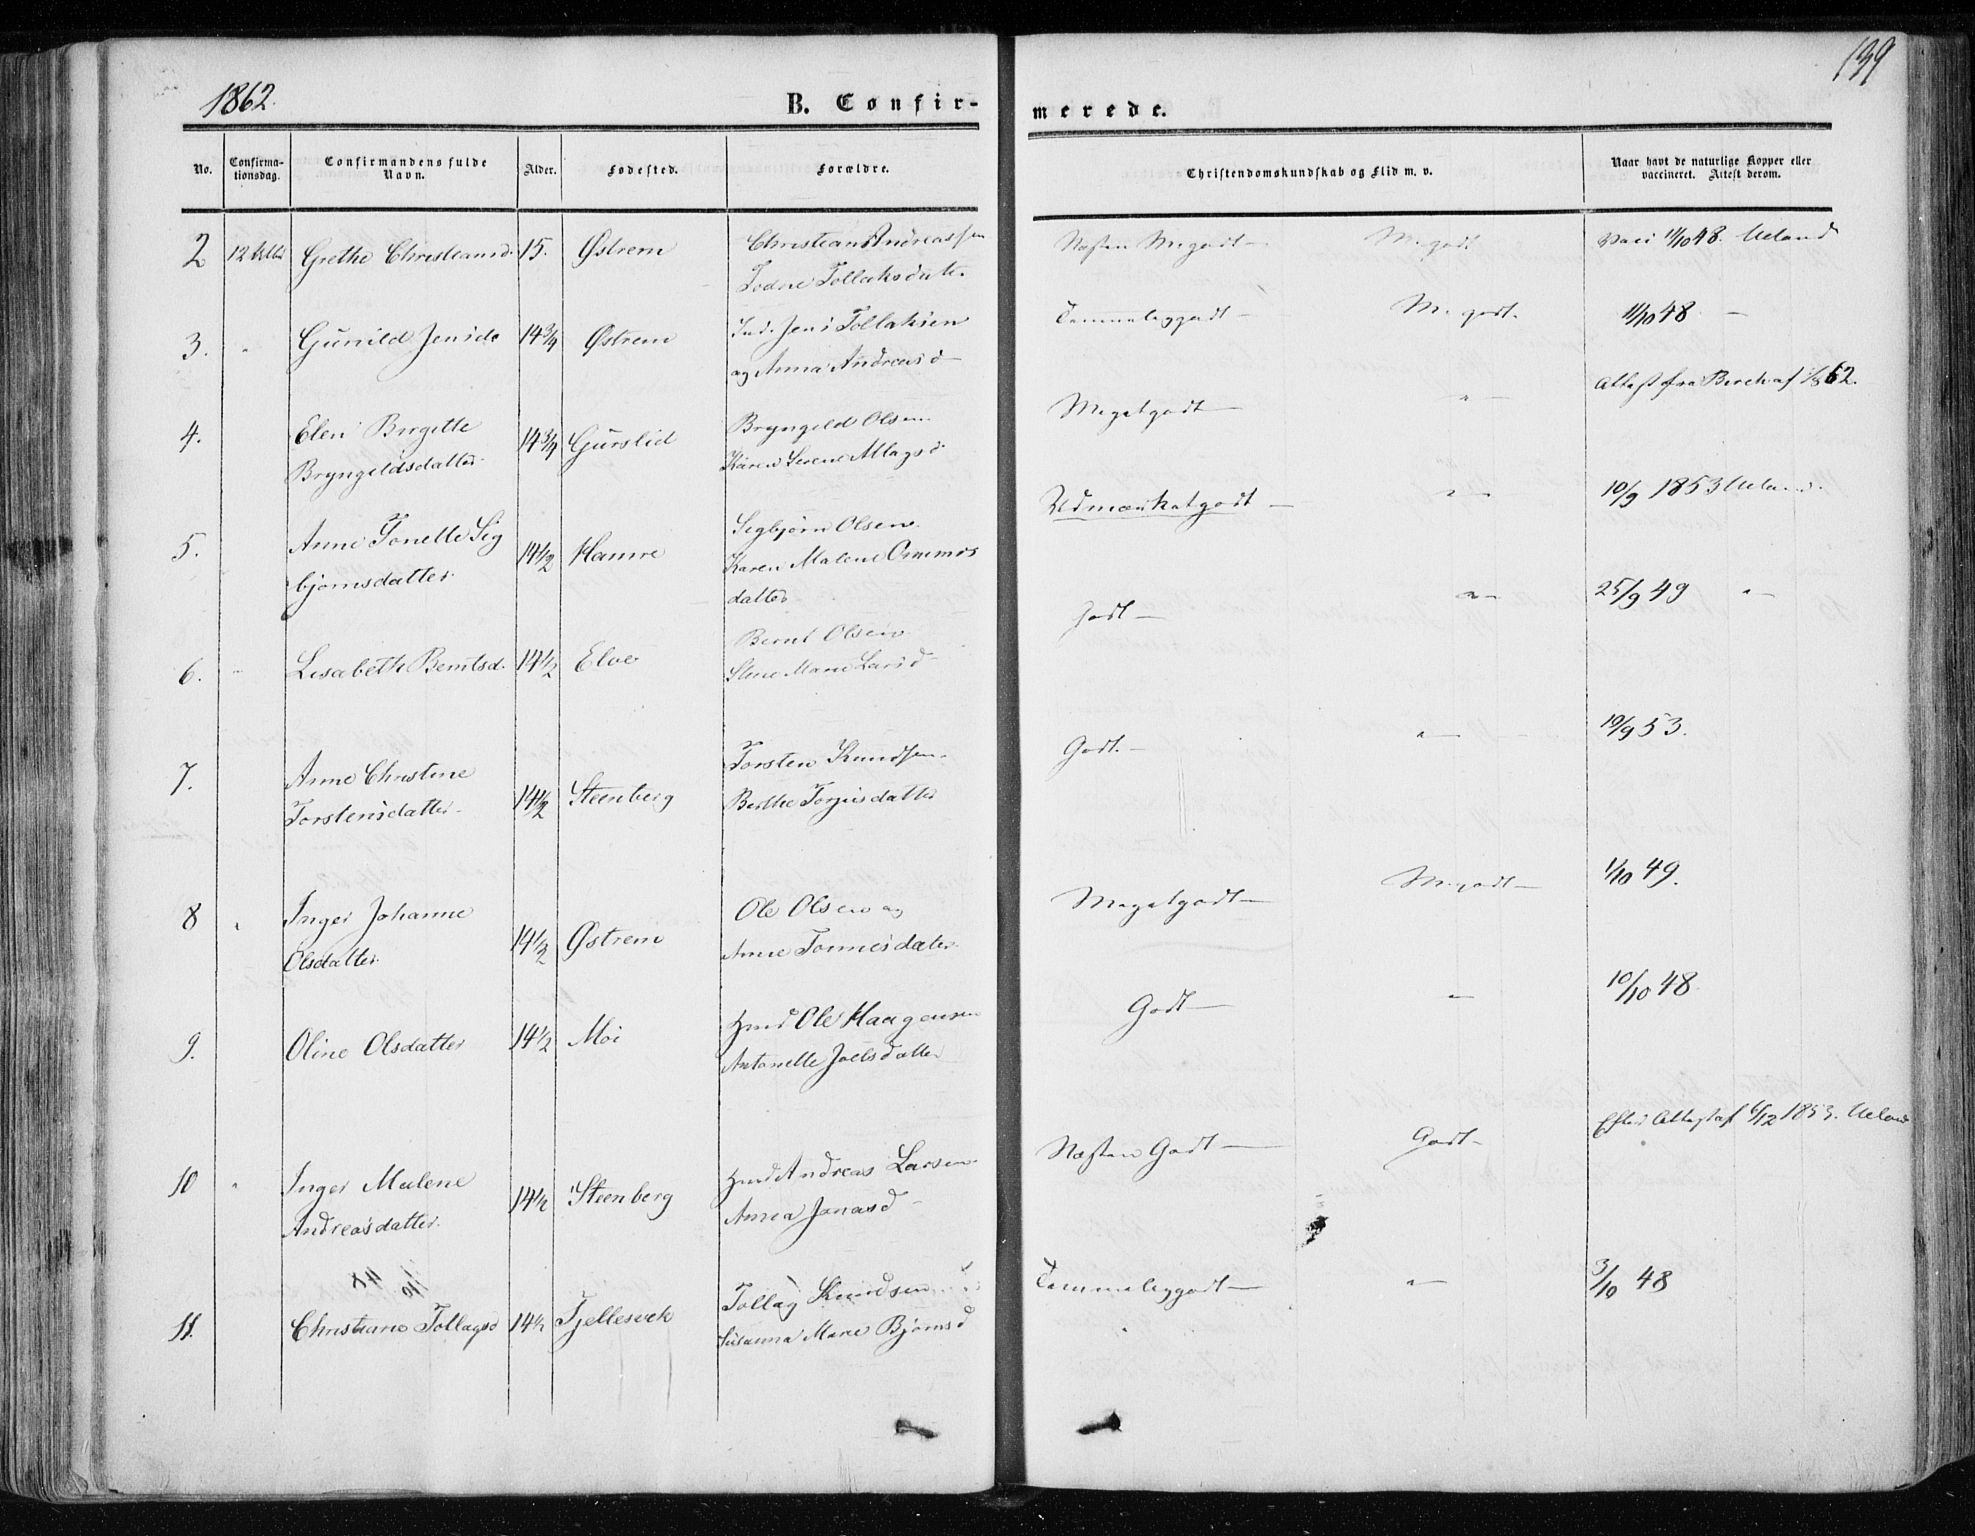 1862.
139
B. Confir-
merede.
No.
Confirma-
tionsdag.
Confirmandens fulde
Navn.
Alder.
Fødested.
Forældre.
Christendomskundskab og Flid m. v.
Naar havt de naturlige Kopper eller
vaccineret. Attest derom.
2 Grethe Christiansd. 15. Østrem
Christian Andreassen
Todne Tollaksdatr.
Næsten Megodt — M. godt Vacc 11/10 48. Ueland
3. " Gunild Jensdr 14 3/4 Østrem
Ind. Jens Tollaksen
og Anna Andreasd —
Temmeliggodt — M. godt. 11/10 48 —
4. Elen Birgitte
Bryngeldsdatter. 14 3/4 Gurslid
Bryngeld Olsen.
Karen Serene Alagsd
Megetgodt — " — Attest fra Birch af 62.
5. Anne Tonette Sig
bjørnsdatter. 14 1/2 Hamre
Segbjørn Olsen.
Karen Malene Ommds
datter
Udmærkatgodt — " — 10/9 1853 Ueland.
6. — Lisabeth Berntsd. 14 1/2 Elve
Bernt Olsen.
Stine Marie Larsd —
Godt — " — 25/9 49 " —
7. Anne Christine
Torstensdatter. 14 1/2 Steenberg
Torsten Knudsen.
Berthe Torjusdatter
Godt. — " — 10/9 53.
8 " Inger Johanne
Olsdatter. 14 1/2 Østrem
Ole Olsen og
Anne Tonnesdater.
Megetgodt — M. godt — 1/10 49.
9. Oline Olsdatter 14 1/2 Moi
Hmd Ole Haagensen
Antonette Joelsdatter
Godt — " — 10/10 48.
10 " Inger Malene
Andreasdatter. 14 1/2 Steenberg
Hmd Andreas Larsen.
Anna Jonasd —
Næsten Godt — Godt — Efter Attest af 6/12 1853. Ueland
11. Christiane Tollagsd 14 1/2 Tjellesvik
Tollag Knudsen
Susanna Marie Bjørnsd
Temmeliggodt — " — 3/10 48